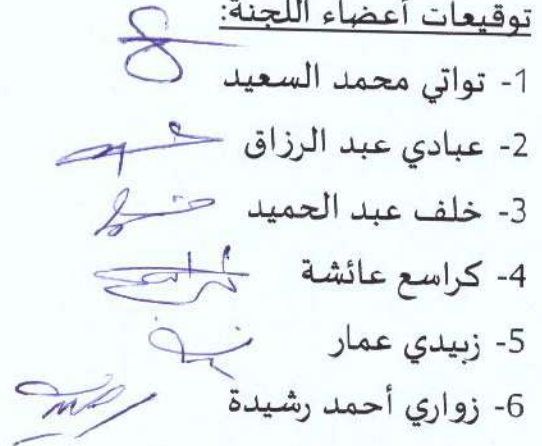 توقيعات أعضاء اللجنة:
1- تواتي محمد السعيد
2- عبادي عبد الرزاق
3- خلف عبد الحميد
4- كراسع عائشة
5- زبيدي عمار
6- زواري أحمد رشيدة